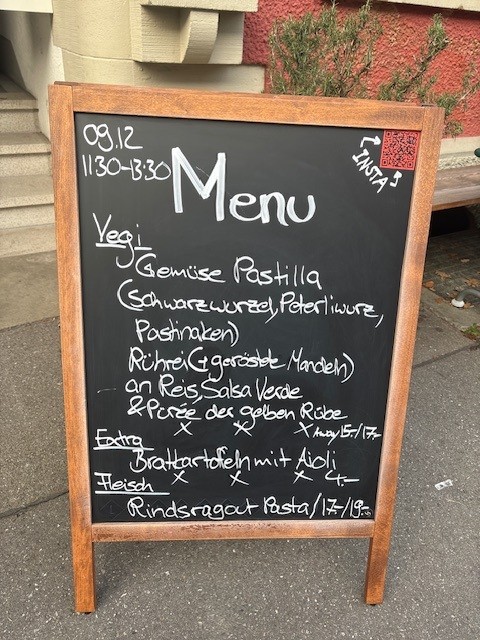 09.12
11:30-13:30
INSTA
Menu
Vegi
Gemüse Pastilla
(Schwarzwurzel, Peterliwurz,
Pastinaken)
Rührei (+ geröstete Mandeln)
an Reis, Salsa Verde
& Pürée der gelben Rübe
x x x Away 15.-/17.-
Extra
Bratkartofeln mit Aioli
x x x 4.-
Fleisch
Rindsragout Pasta/17.-/19.-